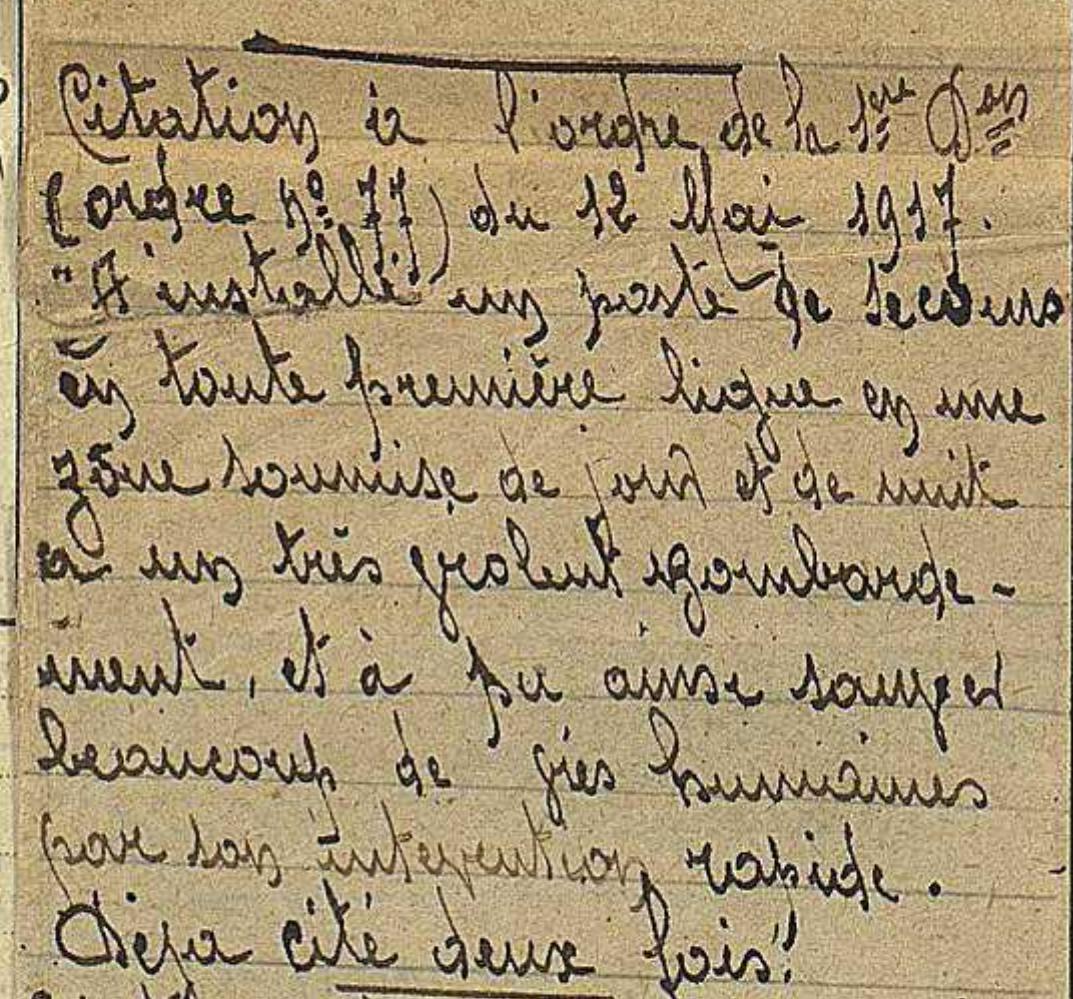 Citation à l'ordre de la 1ère Don
(ordre no 77) du 12 Mai 1917.
"A installé un poste de secours
en toute première ligne en une
zône soumise de jour et de nuit
a un très violent bombarde-
ment, et à pu ainsi sauver
beaucoup de vies humaines
par son intervention rapide.
Déja cité deux fois"